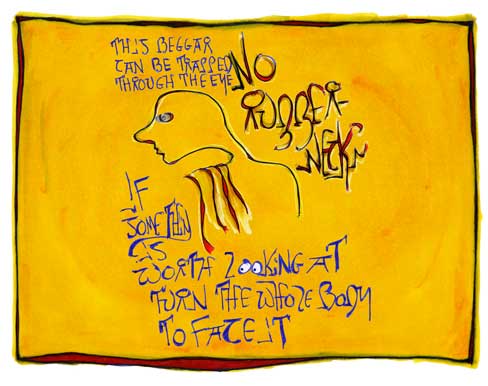 THIS BEGGAR
CAN BE TRAPPED
THROUGH THE EYE
NO
RUBBER-
NECK
IF
SOMETHING
IS
WORTH LOOKING AT
TURN THE WHOLE BODY
TO FACE IT